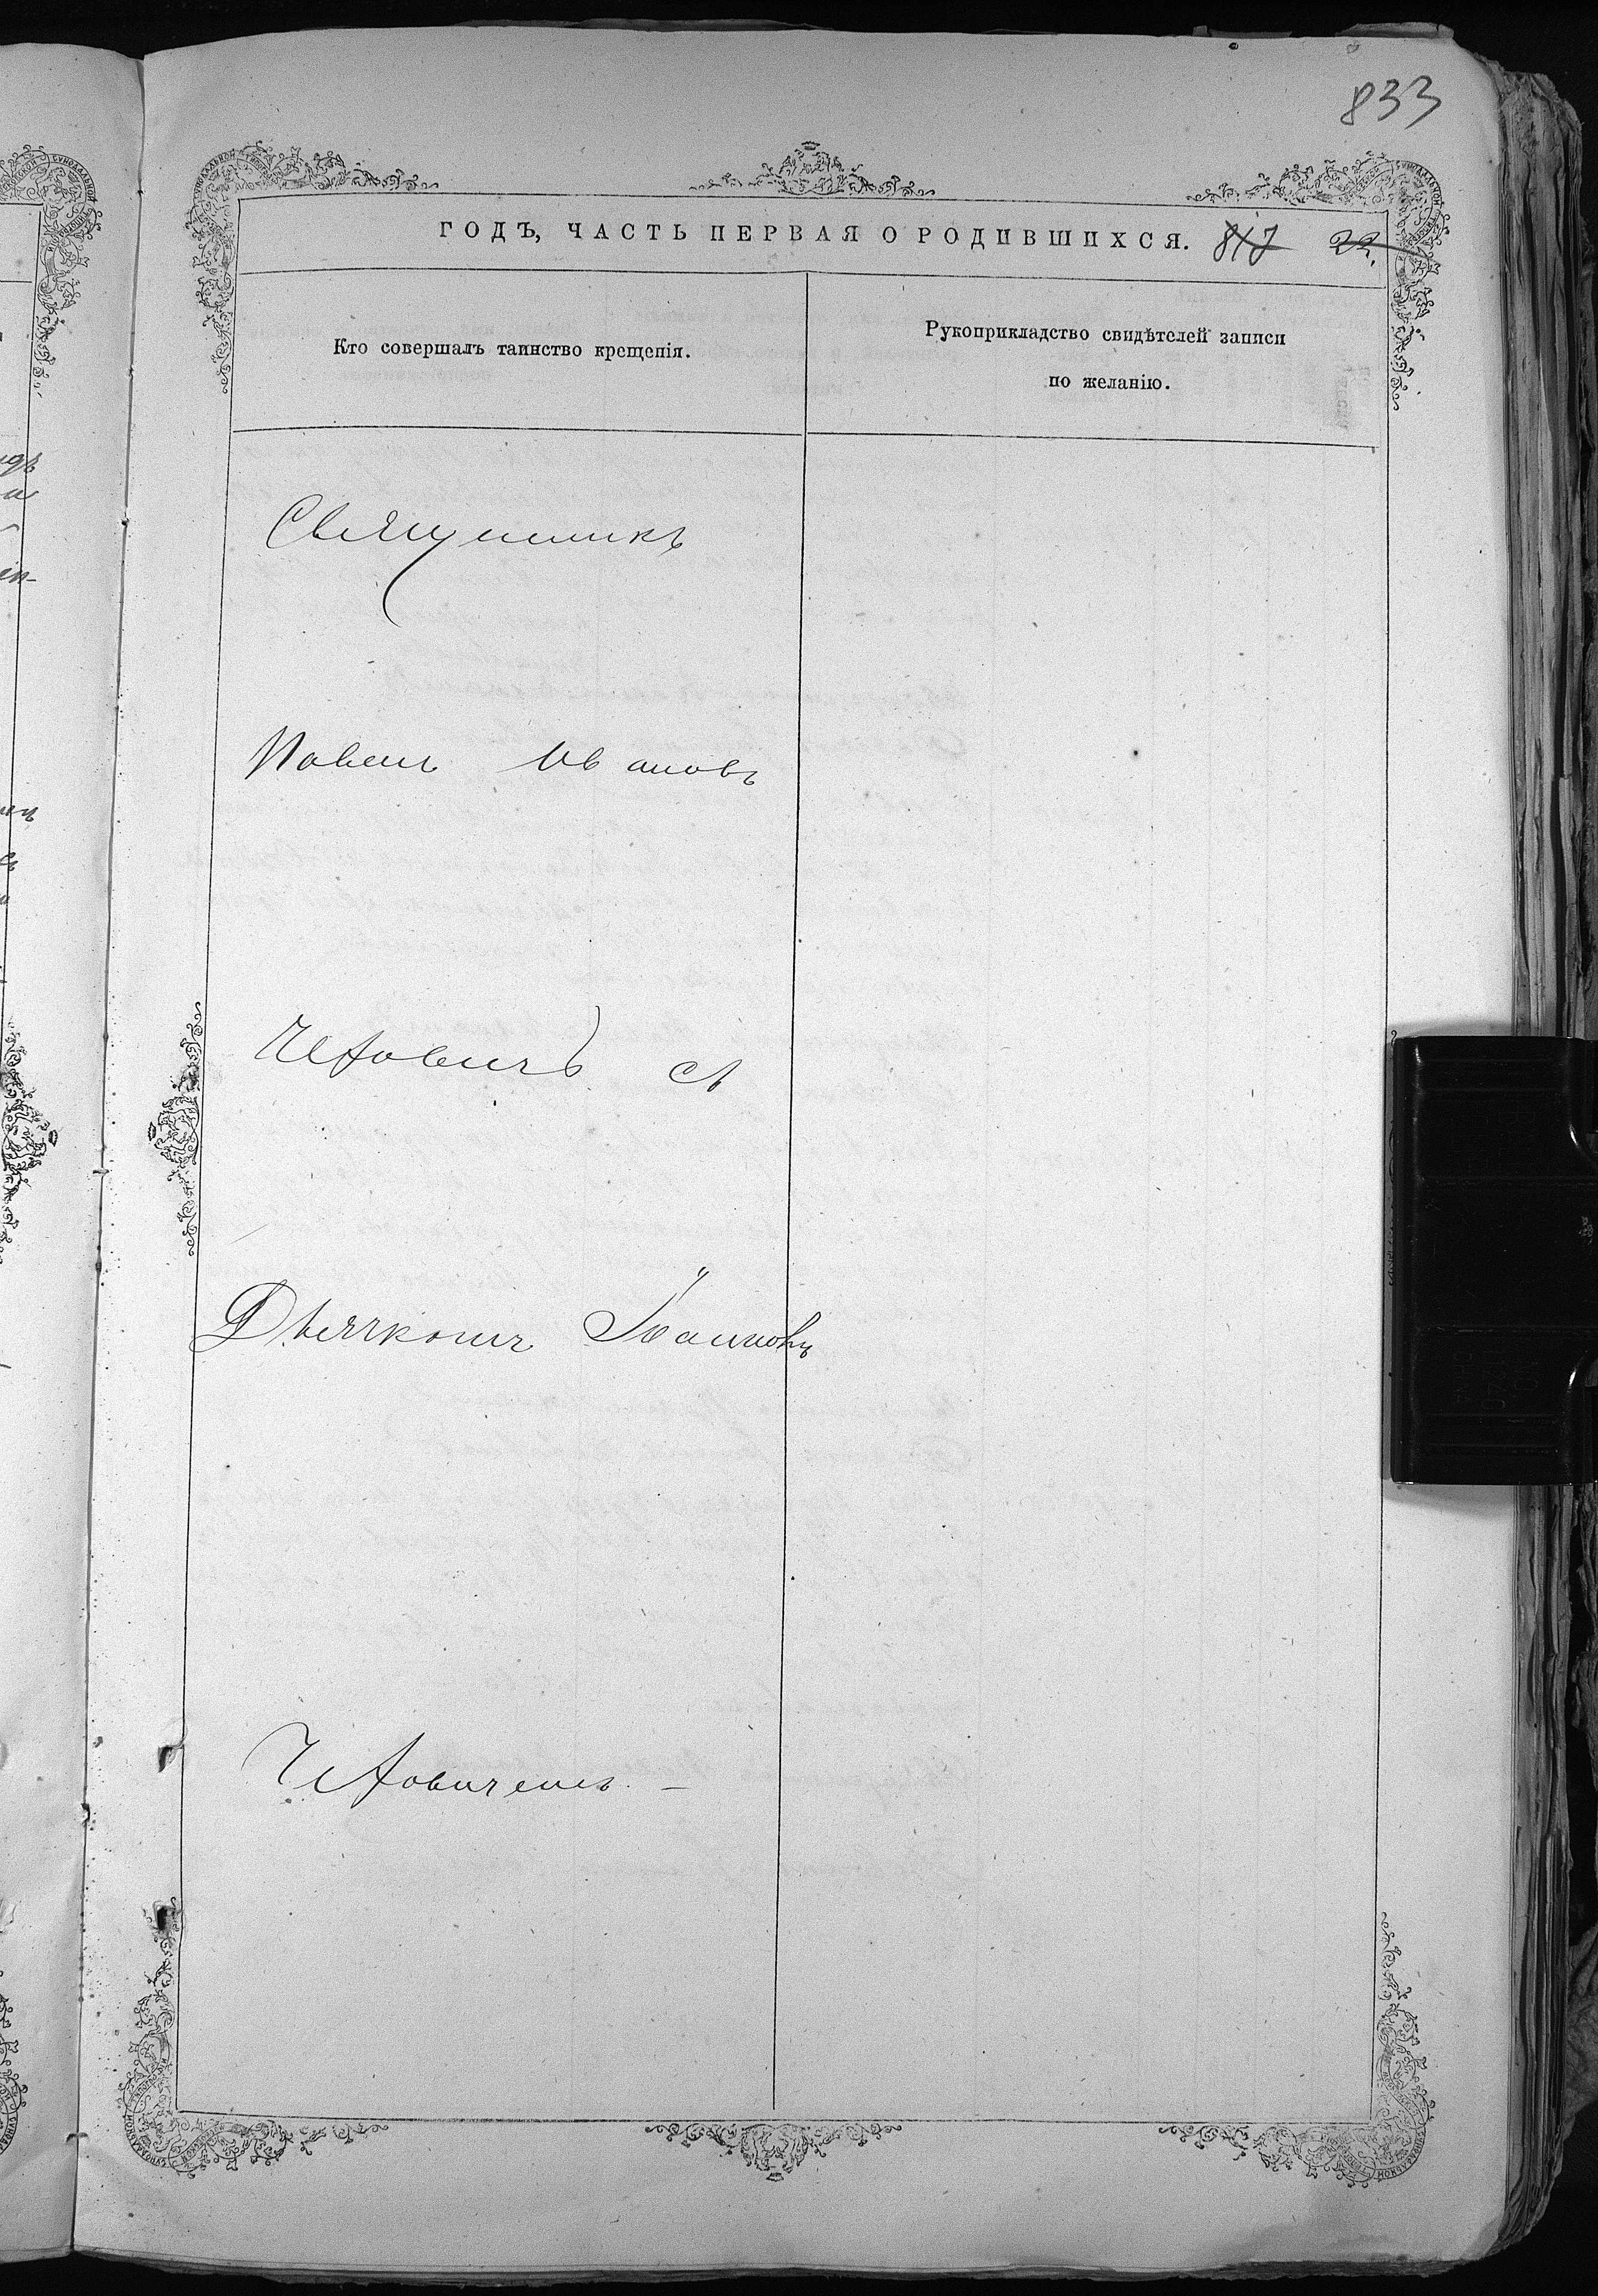 833
ГОДЪ, ЧАСТЬ ПЕРВАЯ О РОДИВШИХСЯ. 817 22.
Кто совершалъ таинство крещенія.
Рукоприкладство свидѣтелей записи
по желанію.
Священникъ
Павелъ Ивановъ
съ
Іванновъ